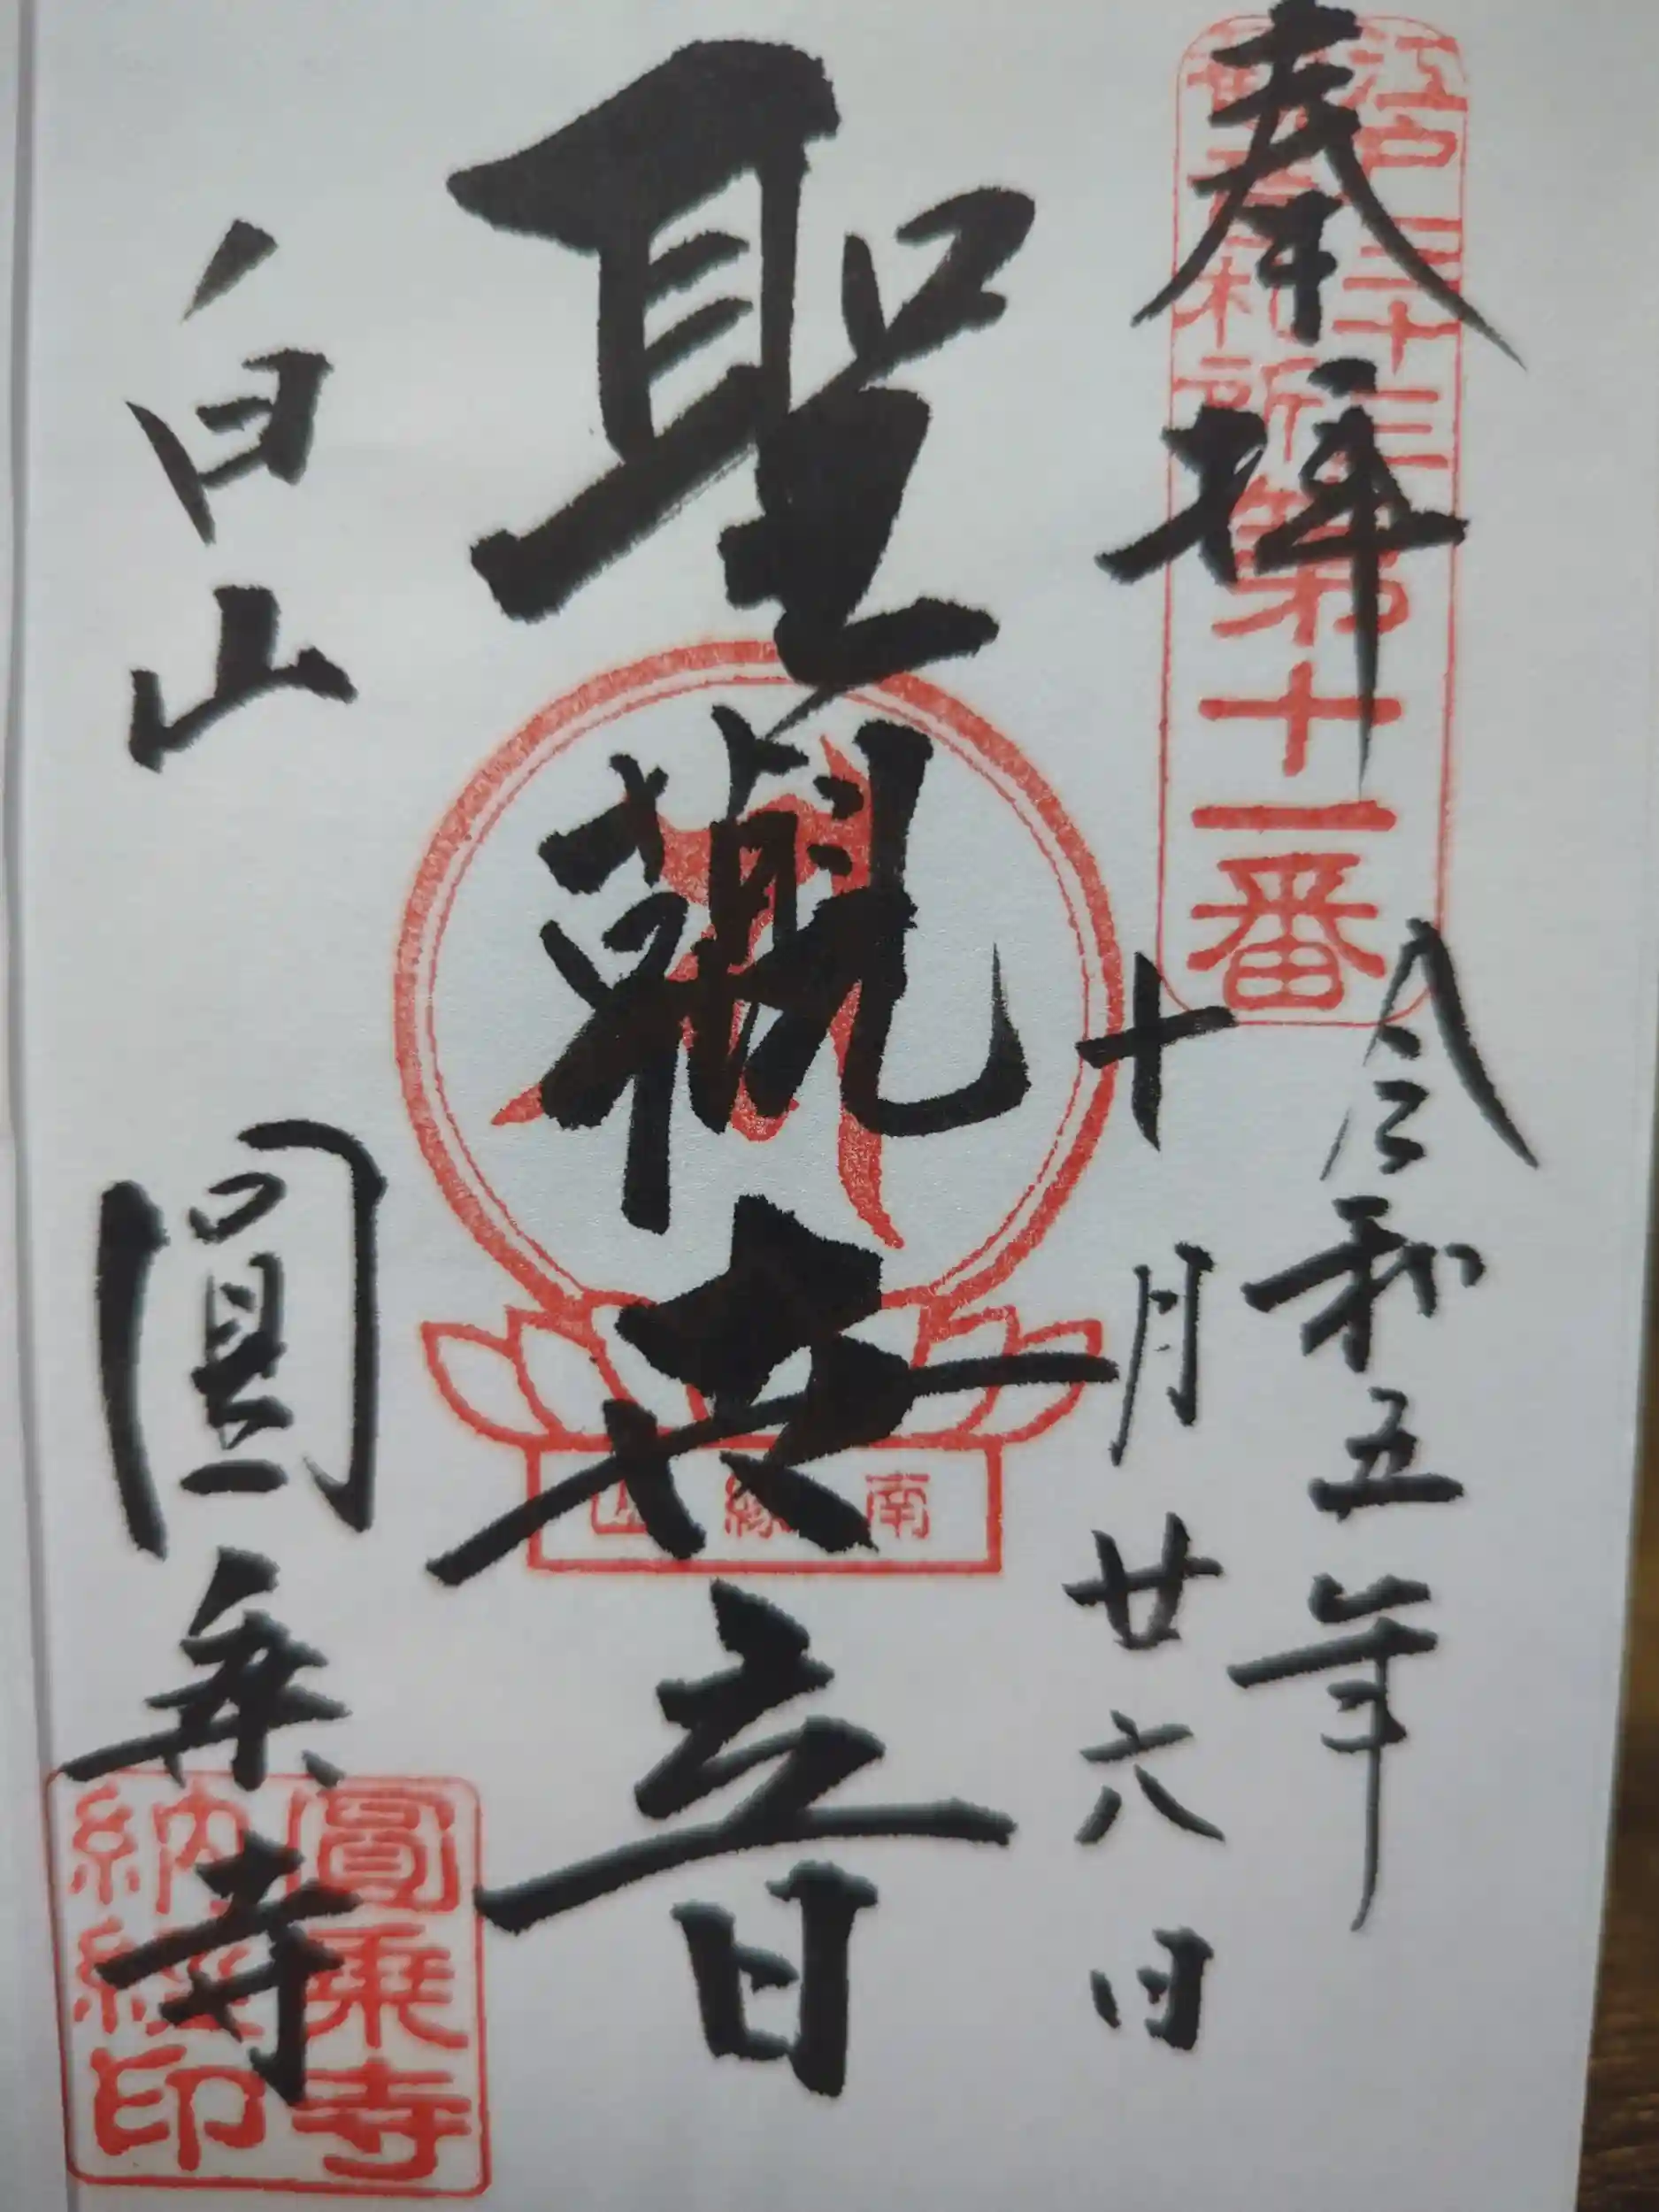 奉拝
江戸三十三
観音札所第十一番
令和五年
十月廿六日
聖観世音
南緣山
白山
圓乗寺
圓乗寺
納経印